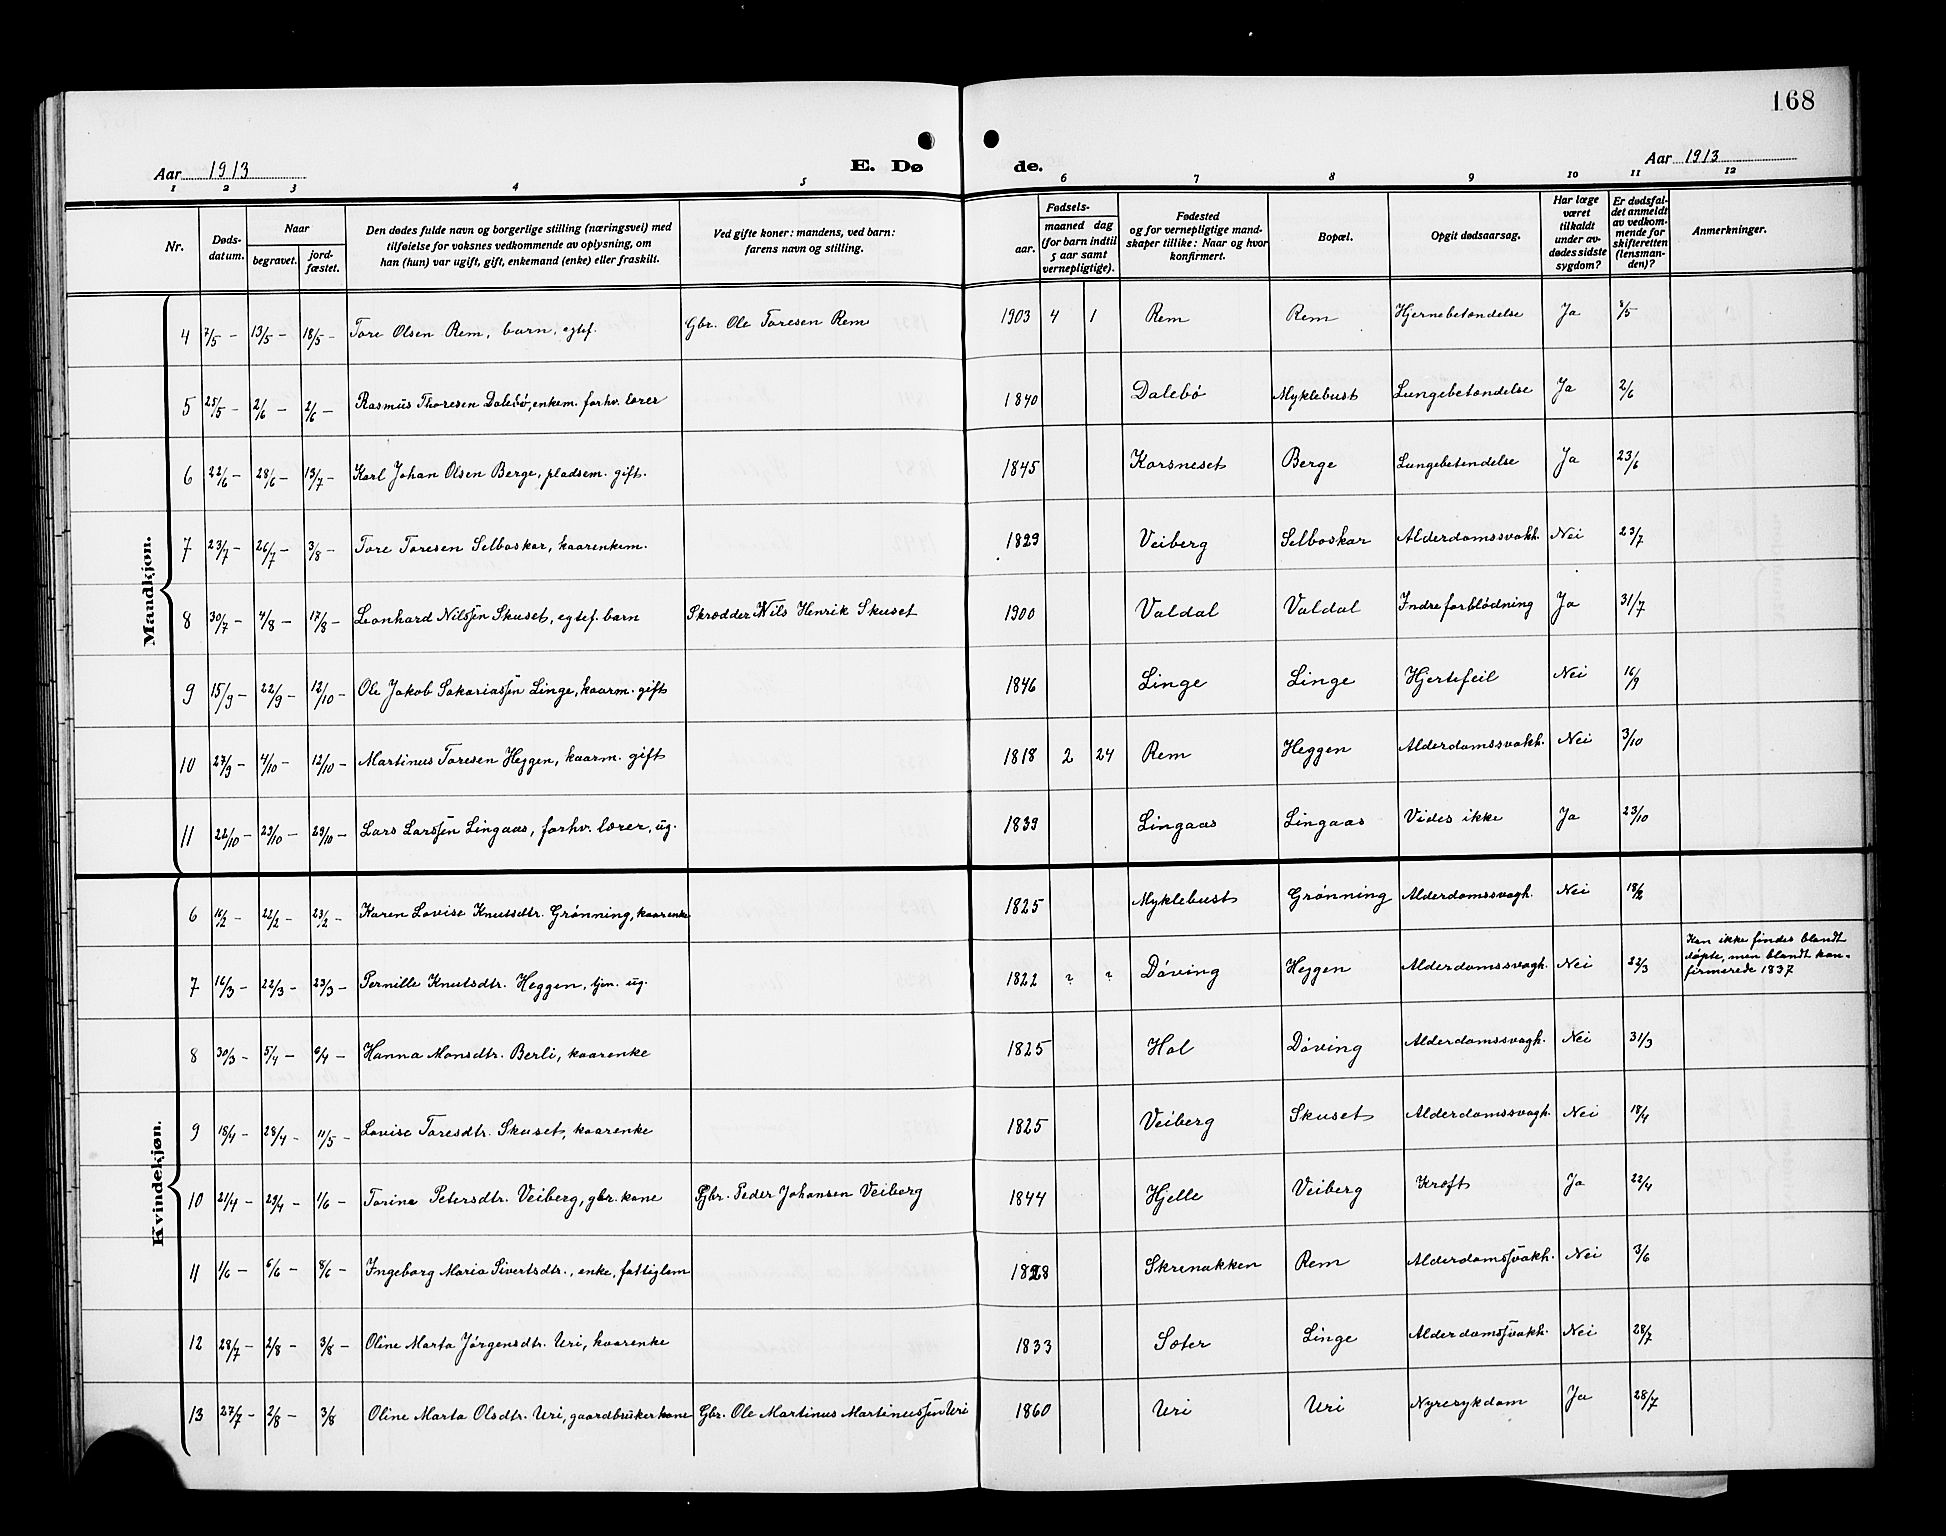 168
Aar 1913
E. Dø
de.
Aar 1913
1 2 3 4 5 6 7 8 9 10 11 12
Nr.
Døds-
datum.
Naar
begravet.
jord-
fæstet.
Den dødes fulde navn og borgerlige stilling (næringsvei) med
tilføielse for voksnes vedkommende av oplysning, om
han (hun) var ugift, gift, enkemand (enke) eller fraskilt.
Ved gifte koner: mandens, ved barn:
farens navn og stilling.
Fødsels-
aar.
maaned dag
(for barn indtil
5 aar samt
vernepligtige).
Fødested
og for vernepligtige mand-
skaper tillike: Naar og hvor
konfirmert.
Bopæl.
Opgit dødsaarsag.
Har læge
været
tilkaldt
under av-
dødes sidste
sygdom?
Er dødsfal-
det anmeldt
av vedkom-
mende for
skifteretten
(lensman-
den)?
Anmerkninger.
Mandkjøn.
4 7/5 – 13/5 – 18/5 – Tore Olsen Rem, barn, egtef. Gbr. Ole Toresen Rem 1903 4 1 Rem Rem Hjernebetændelse Ja 8/5
5 25/5 – 2/6 – 2/6 – Rasmus Thoresen Dalebø, enkem. forhv. lærer 1840 Dalebø Myklebust Lungebetændelse Ja 2/6
6 22/6 – 28/6 – 13/7 – Karl Johan Olsen Berge, pladsem. gift. 1845 Korsneset Berge Lungebetendelse Ja 23/6
7 23/7 – 26/7 – 3/8 – Tore Toresen Selboskar, kaarenkem. 1829 Veiberg Selboskar Alderdomssvakh. Nei 23/7
8 30/7 – 4/8 – 17/8 – Leonhard Nilssen Skuset, egtef. barn Skrædder Nils Henrik Skuset 1900 Valdal Valdal Indre forblødning Ja 31/7
9 15/9 – 22/9 – 12/10 – Ole Jakob Sakariassen Linge, kaarm. gift 1846 Linge Linge Hjertefeil Nei 16/9
10 27/9 – 4/10 – 12/10 – Martinus Toresen Heggen, kaarm. gift 1818 2 24 Rem Heggen Alderdomssvakh. Nei 3/10
11 22/10 – 29/10 – 29/10 – Lars Larssen Lingaas, forhv. lærer, ug. 1839 Lingaas Lingaas Vides ikke Ja 23/10
Kvindekjøn.
6 16/2 – 22/2 – 23/2 – Karen Lovise Knutsdtr. Grønning, kaarenke 1825 Myklebust Grønning Alderdomssvagh. Nei 18/2
7 16/3 – 22/3 – 23/3 – Pernille Knutsdtr. Heggen, tjen. ug. 1822 ? ? Døving Heggen Alderdomssvagh. Nei 22/3 Kan ikke findes blandt
døpte, men blandt kon-
firmerede 1837
8 30/3 – 5/4 – 6/4 – Hanna Monsdtr. Berli, kaarenke 1825 Hol Døving Alderdomssvagh. Nei 31/3
9 18/4 – 28/4 – 11/5 – Lovise Toresdtr. Skuset, kaarenke 1825 Veiberg Skuset Alderdomssvagh. Nei 18/4
10 21/4 – 29/4 – 1/6 – Torine Petersdtr. Veiberg, gbr. kone Gbr. Peder Johansen Veiberg 1844 Hjelle Veiberg Kræft Ja 22/4
11 1/6 – 6/6 – 8/6 – Ingeborg Maria Sivertsdtr., enke, fattiglem 1828 Skrenakken Rem Alderdomssvakh. Nei 3/6
12 28/7 – 2/8 – 3/8 – Oline Marta Jørgensdtr. Uri, kaarenke 1833 Sæter Linge Alderdomssvakh. Nei 28/7
13 27/7 – 2/8 – 3/8 Oline Marta Olsdtr. Uri, gaardbrukerkone Gbr. Ole Martinus Martinussen Uri 1860 Uri Uri Nyresykdom Ja 28/7